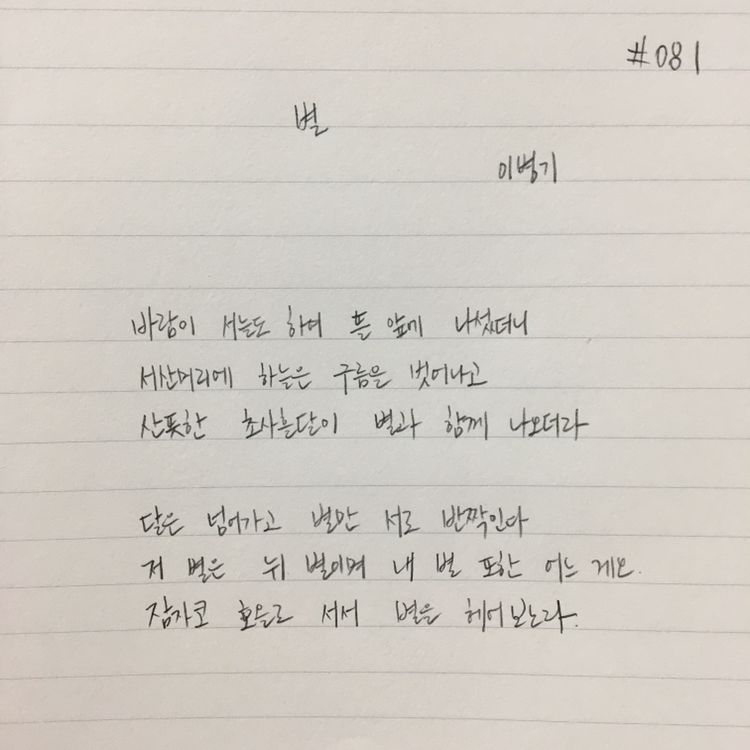 #081
별
이병기
바람이 서늘도 하여 뜰 앞에 나섰더니
서산머리에 하늘은 구름을 벗어나고
산뜻한 초사흘달이 별과 함께 나오더라
달은 넘어가고 별만 서로 반짝인다
저 별은 뉘 별이며 내 별 또한 어느 게오.
잠자코 호올로 서서 별을 헤어보노라.